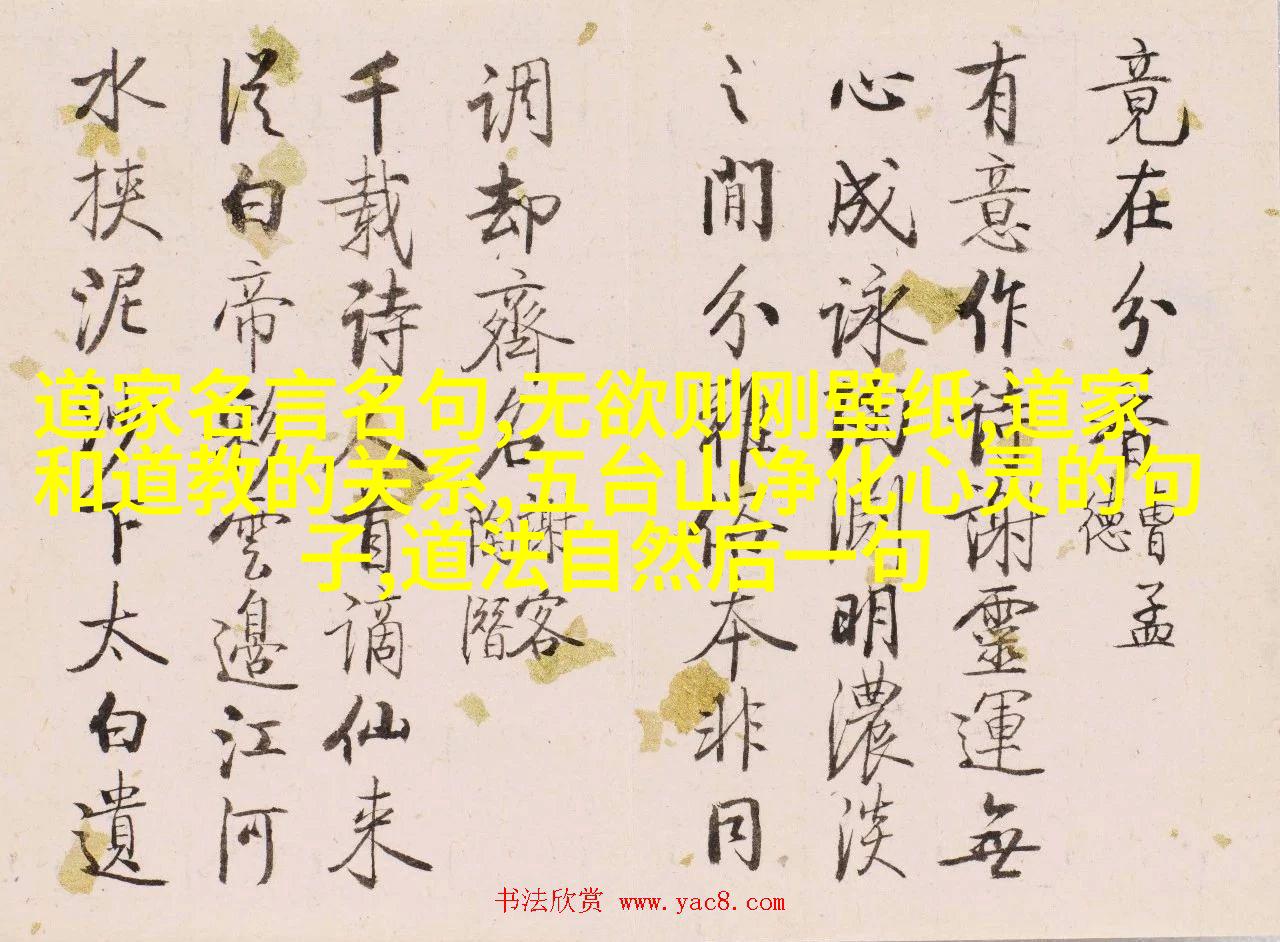 竟在分香曹孟德
有意作诗谢靈運無
心成詠陶淵明濃淡
之間分雅俗本非同
调却齊名谢客陶潛
千载诗人首谪仙来
從白帝彩雲邊江河
水挟泥沙下太白遺
道家名言名句,无欲则刚壁纸,道家
和道教的关系,五台山净化心灵的句
子,道法自然后一句
书法欣赏 www.yac8.com